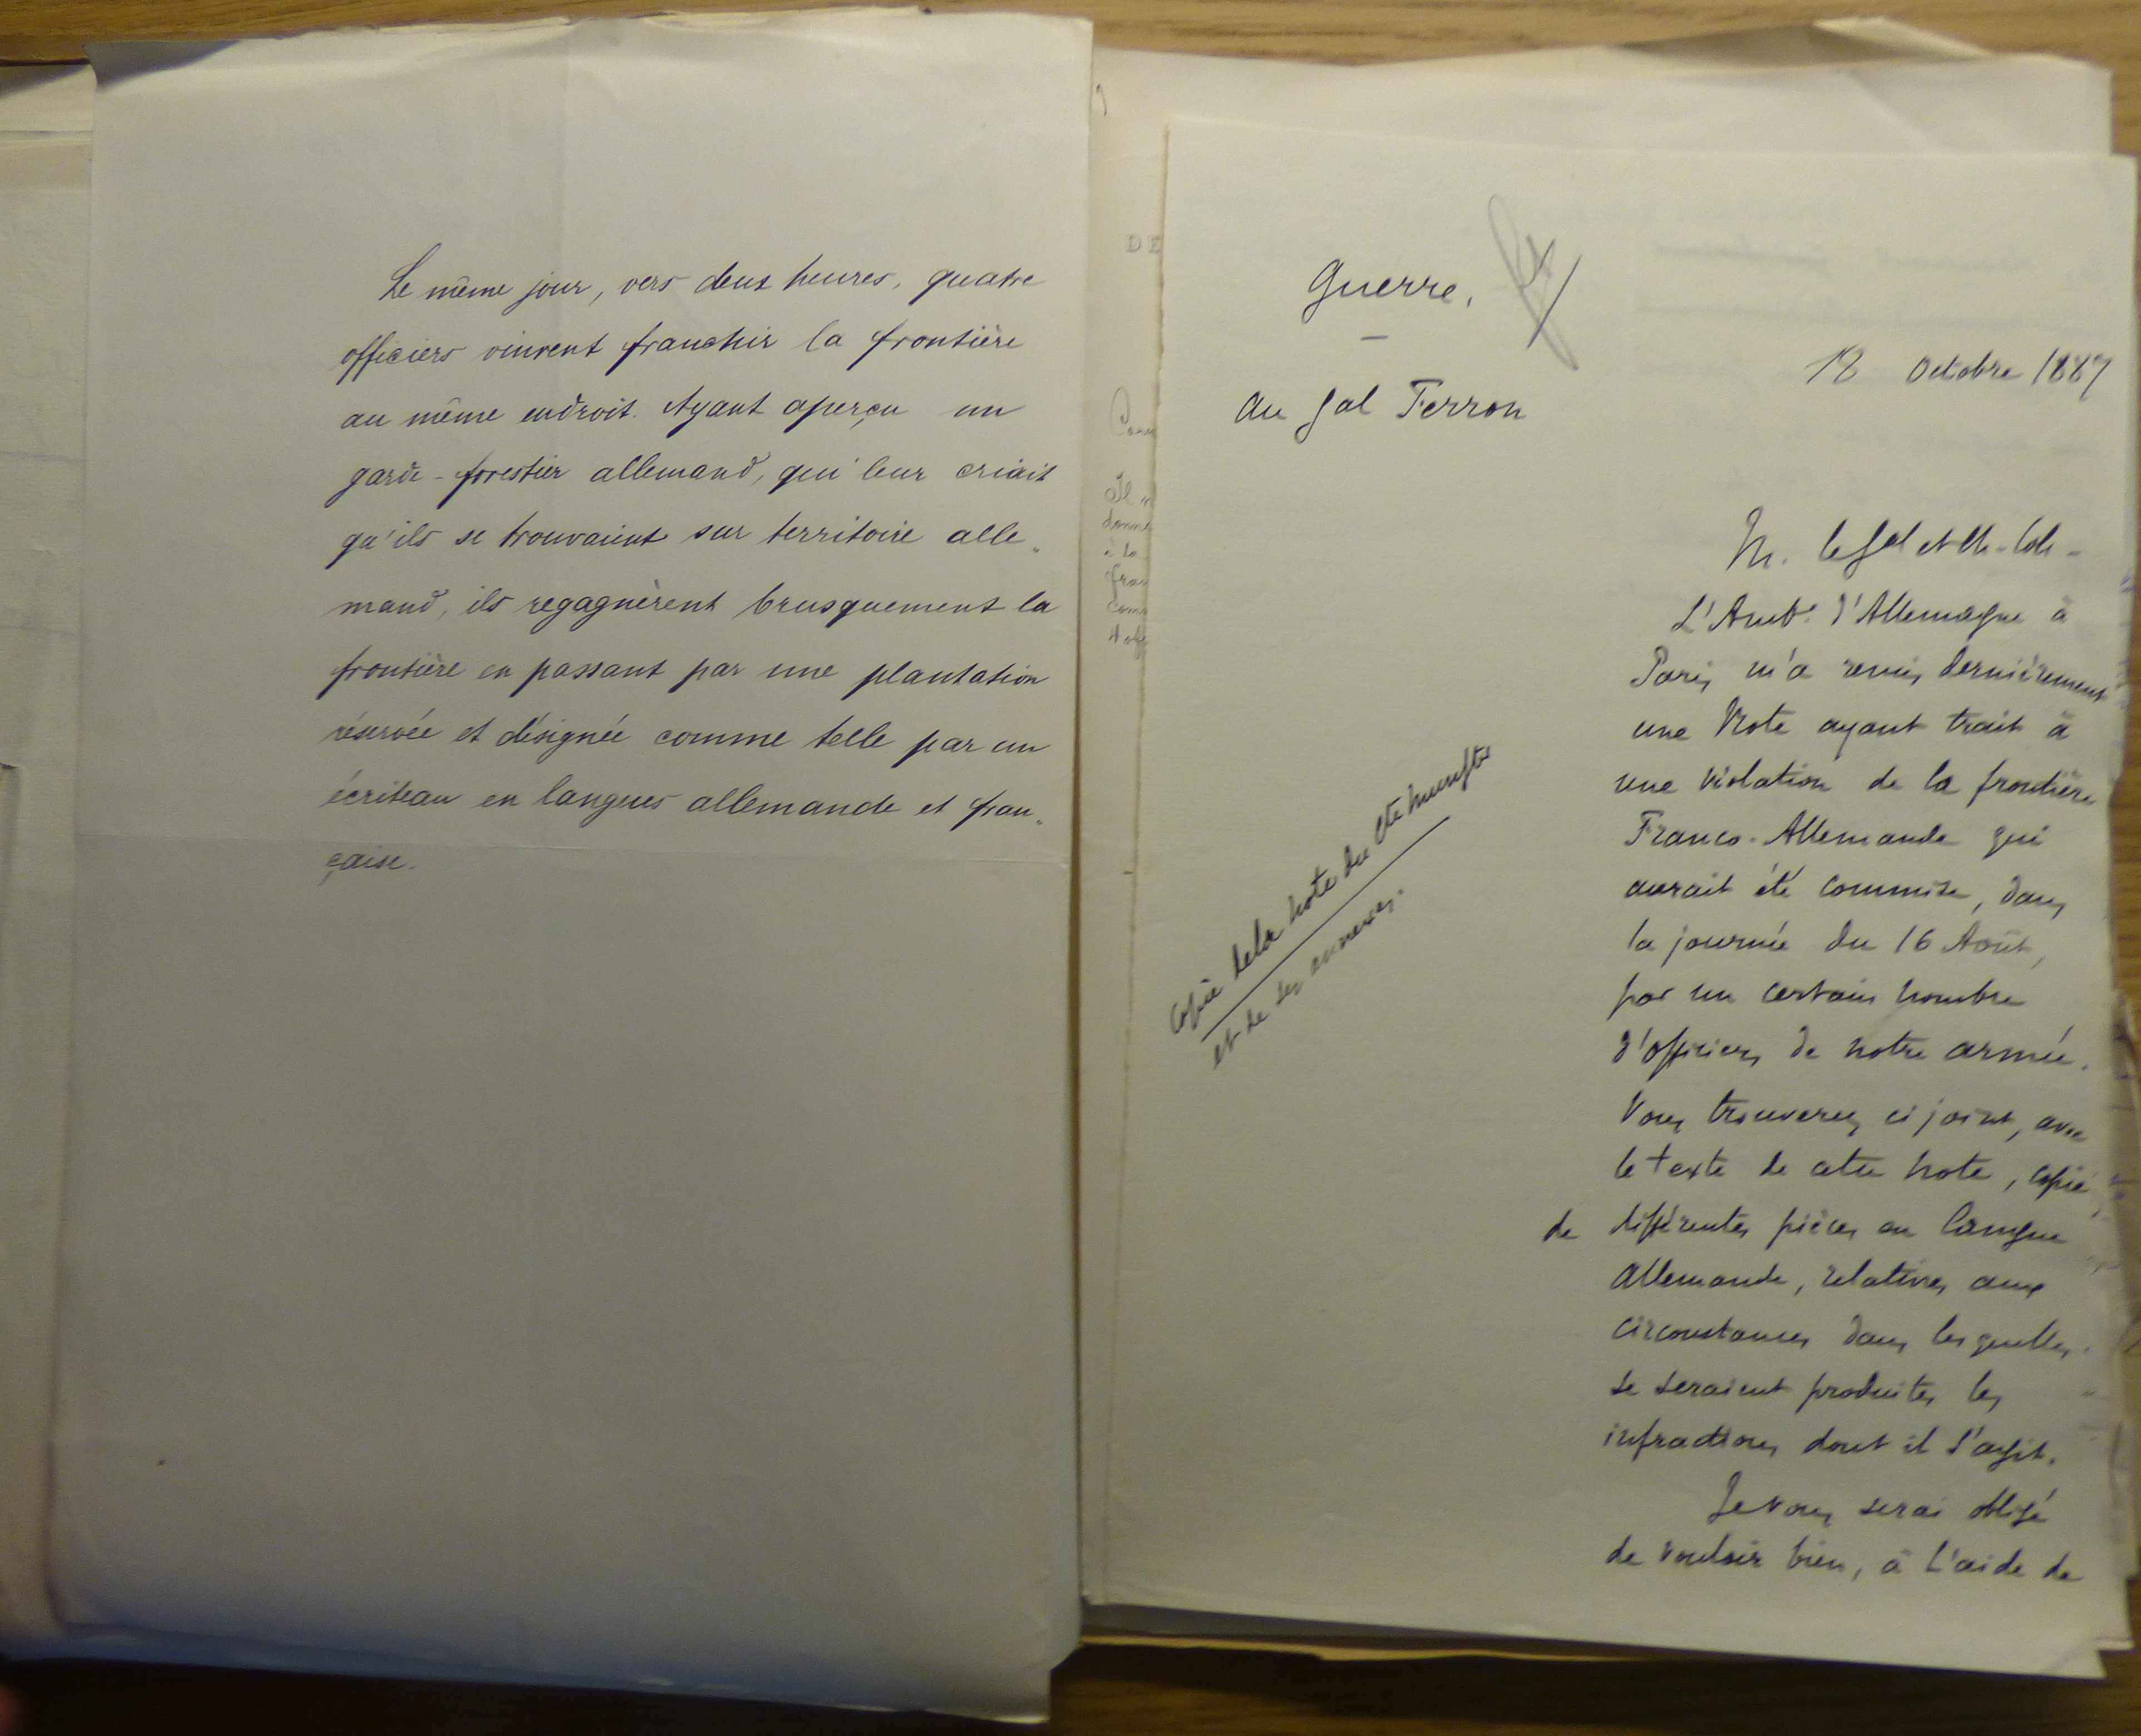 Le même jour, vers deux heures, quatre
officiers vinrent franchir la frontière
au même endroit. Ayant aperçu un
garde-forestier allemand, qui leur criait
qu'ils se trouvaient sur territoire alle-
mand, ils regagnèrent brusquement la
frontière en passant par une plantation
réservée et désignée comme telle par un
écriteau en langues allemande et fran-
çaise.
DE
Il
donne
à la
Guerre,
18 Octobre 1887
Au Gal Ferron
M. le Gal et Ch. Col.
L'Ambr. d'Allemagne à
Paris m'a remis dernièrement
une Note ayant trait à
une violation de la frontière
Franco-Allemande qui
aurait été commise, dans
la journée du 16 Août,
par un certain nombre
d'officiers de notre armée.
Vous trouverez ci joint, avec
le texte de cette note, copie
de différentes pièces en langue
Allemande, relatives aux
circonstances dans lesquelles
se seraient produites les
infractions dont il s'agit.
Je vous serai obligé
de vouloir bien, à l'aide de
Copie de la note du Cte Munster
et de ses annexes.